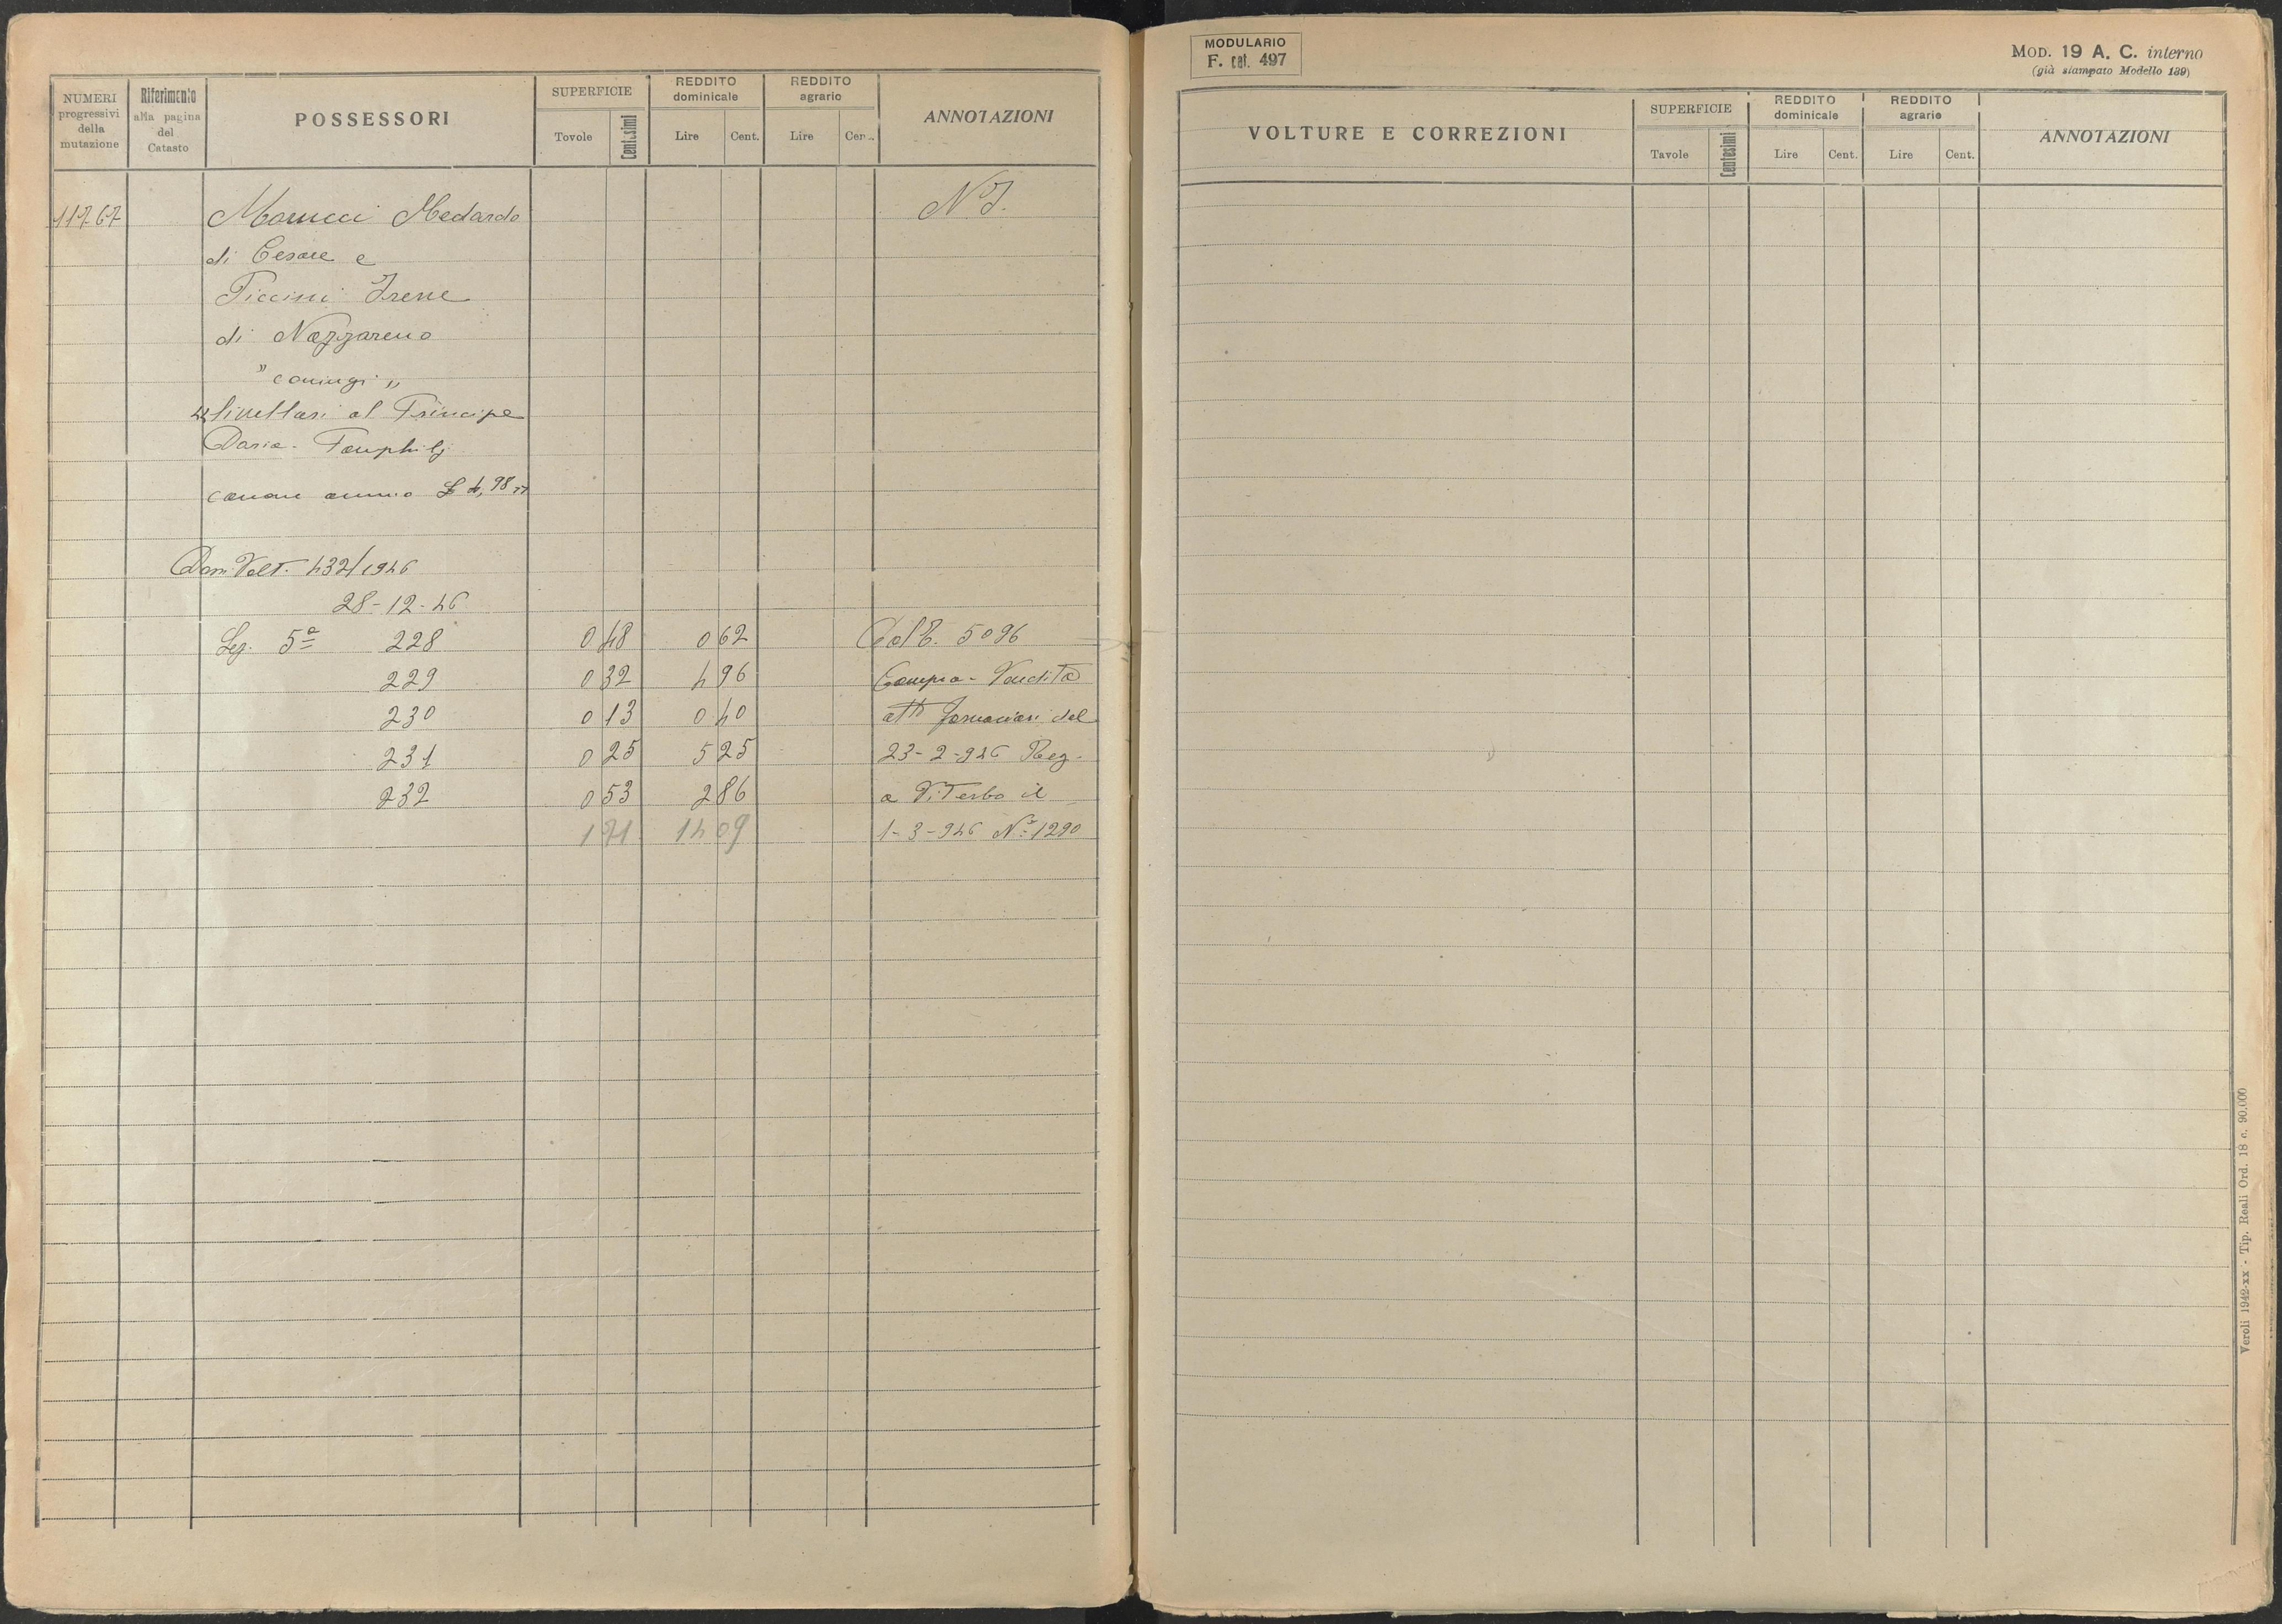 NUMERI progressivi della mutazione
Riferimento alla pagina del Catasto
POSSESSORI
SUPERFICIE
Tavole
Centesimi
REDDITO dominicale
Lire
Cent.
REDDITO agrario
Lire
Cent.
ANNOTAZIONI
11767
Marucci Medardo
N.T.
di Cesare e
Piccini Irene
di Nazzareno
" coniugi "
livellari al Principe
Doria - Pamphilj
canone annuo L 4,98
Dom. Volt. 432/1946
28-12-46
Sez. 5ª 228 0 48 0 62 Dal P. 5096
229 0 32 4 96 Compra-Vendita
230 0 13 0 40 atto Fornaciari del
231 0 25 5 25 23-2-946 Reg.
232 0 53 2 86 a Viterbo il
1 71 14 09 1-3-946 N° 1290
MODULARIO
F. cat. 497
MOD. 19 A. C. interno
(già stampato Modello 139)
VOLTURE E CORREZIONI
SUPERFICIE
Tavole
Centesimi
REDDITO dominicale
Lire
Cent.
REDDITO agrario
Lire
Cent.
ANNOTAZIONI
Veroli 1942-XX - Tip. Reali Ord. 18 c. 90.000